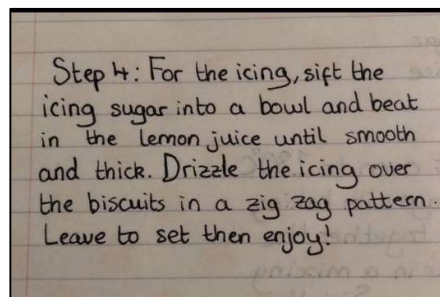 Step 4: For the icing, sift the
icing sugar into a bowl and beat
in the lemon juice until smooth
and thick. Drizzle the icing over
the biscuits in a zig zag pattern.
Leave to set then enjoy!